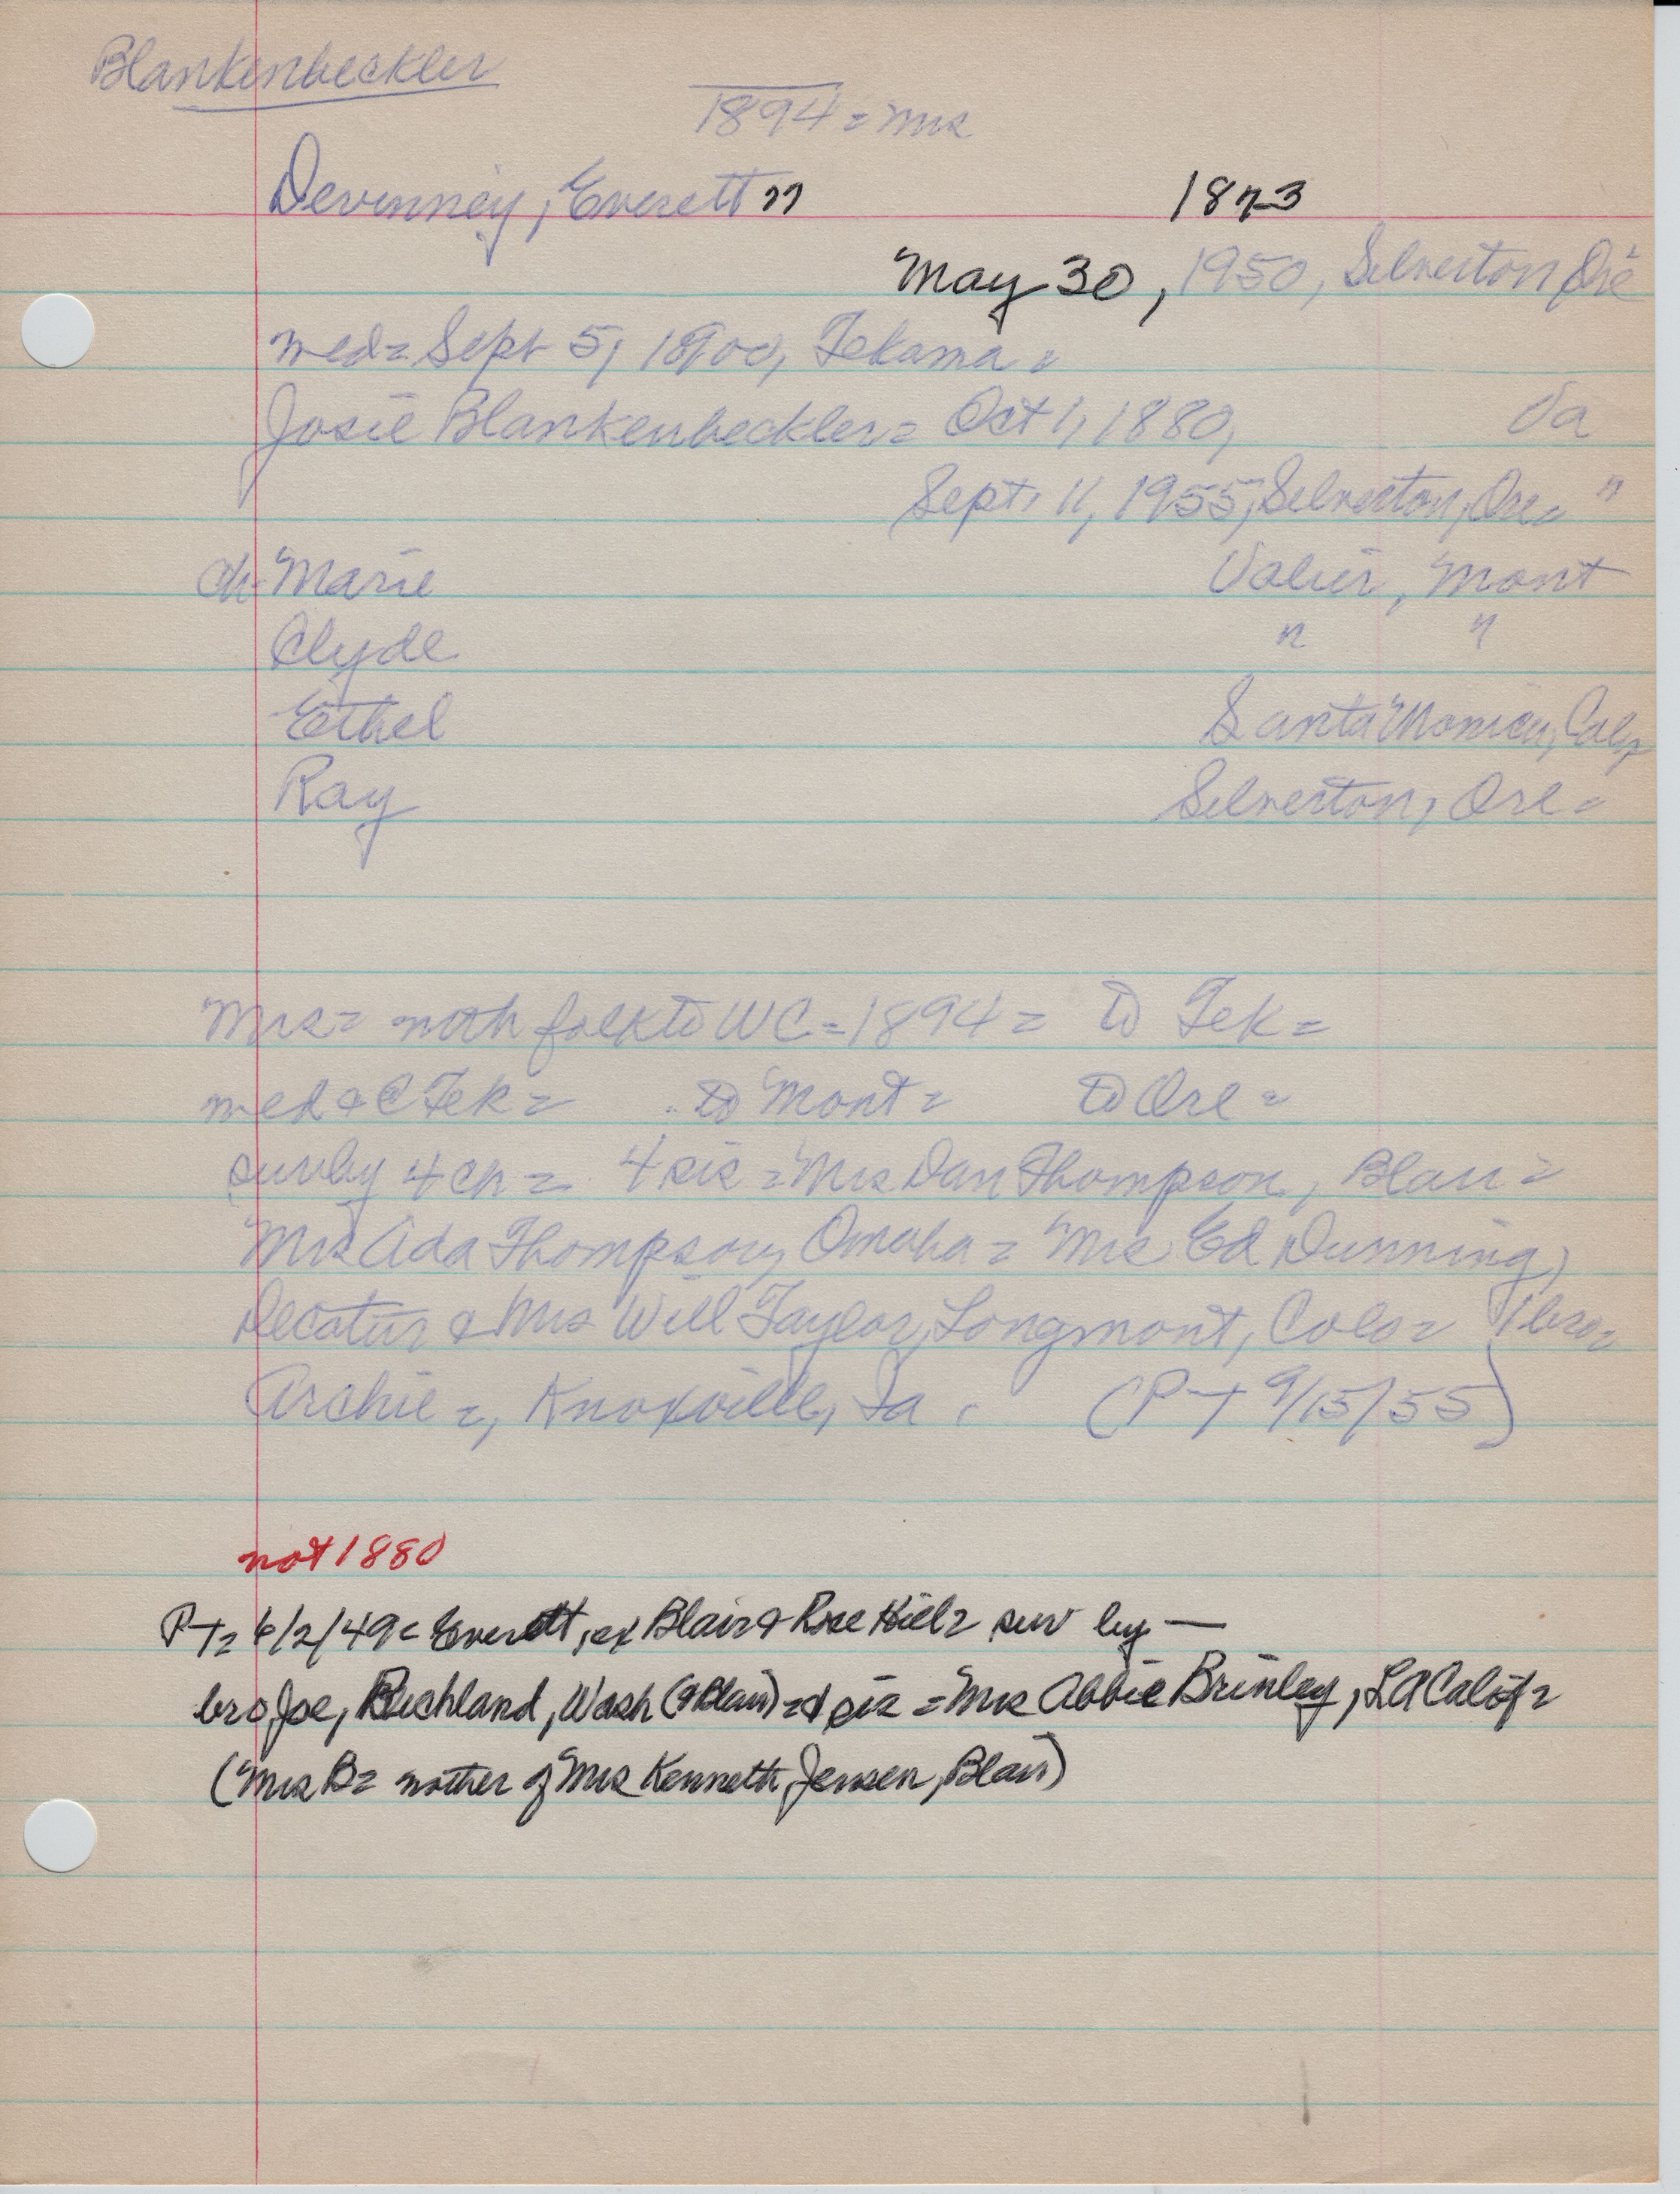 Blankenbeckler
1894 = Mrs
Devinney, Everett "
1873
May 30, 1950, Silverton Ore
med= Sept 5, 1900, Tekama =
Josie Blankenbeckler= Oct 1, 1880, Va
Sept. 11, 1955, Silverton, Ore= "
ch- Marie Valier, Mont
Clyde " "
Ethel Santa Monica, Calif
Ray Silverton, Ore=
Mrs= with folk to WC=1894= to Tek=
med @ Tek= to Mont= to Ore=
surv by 4 ch= 4 sis=Mrs Dan Thompson, Blair=
Mrs Ada Thompson, Omaha= Mrs Ed Dunning,
Decatur & Mrs Will Taylor, Longmont, Colo= 1 bro=
Archie=, Knoxville, Ia. (PT 9/15/55)
not 1880
PT= 6/2/49= Everett, ex Blair & Rose Hill= surv by —
bro Joe, Richland, Wash (@ Blair)= & sis=Mrs Abbie Brinley, LA Calif=
(Mrs B= mother of Mrs Kenneth Jensen, Blair)